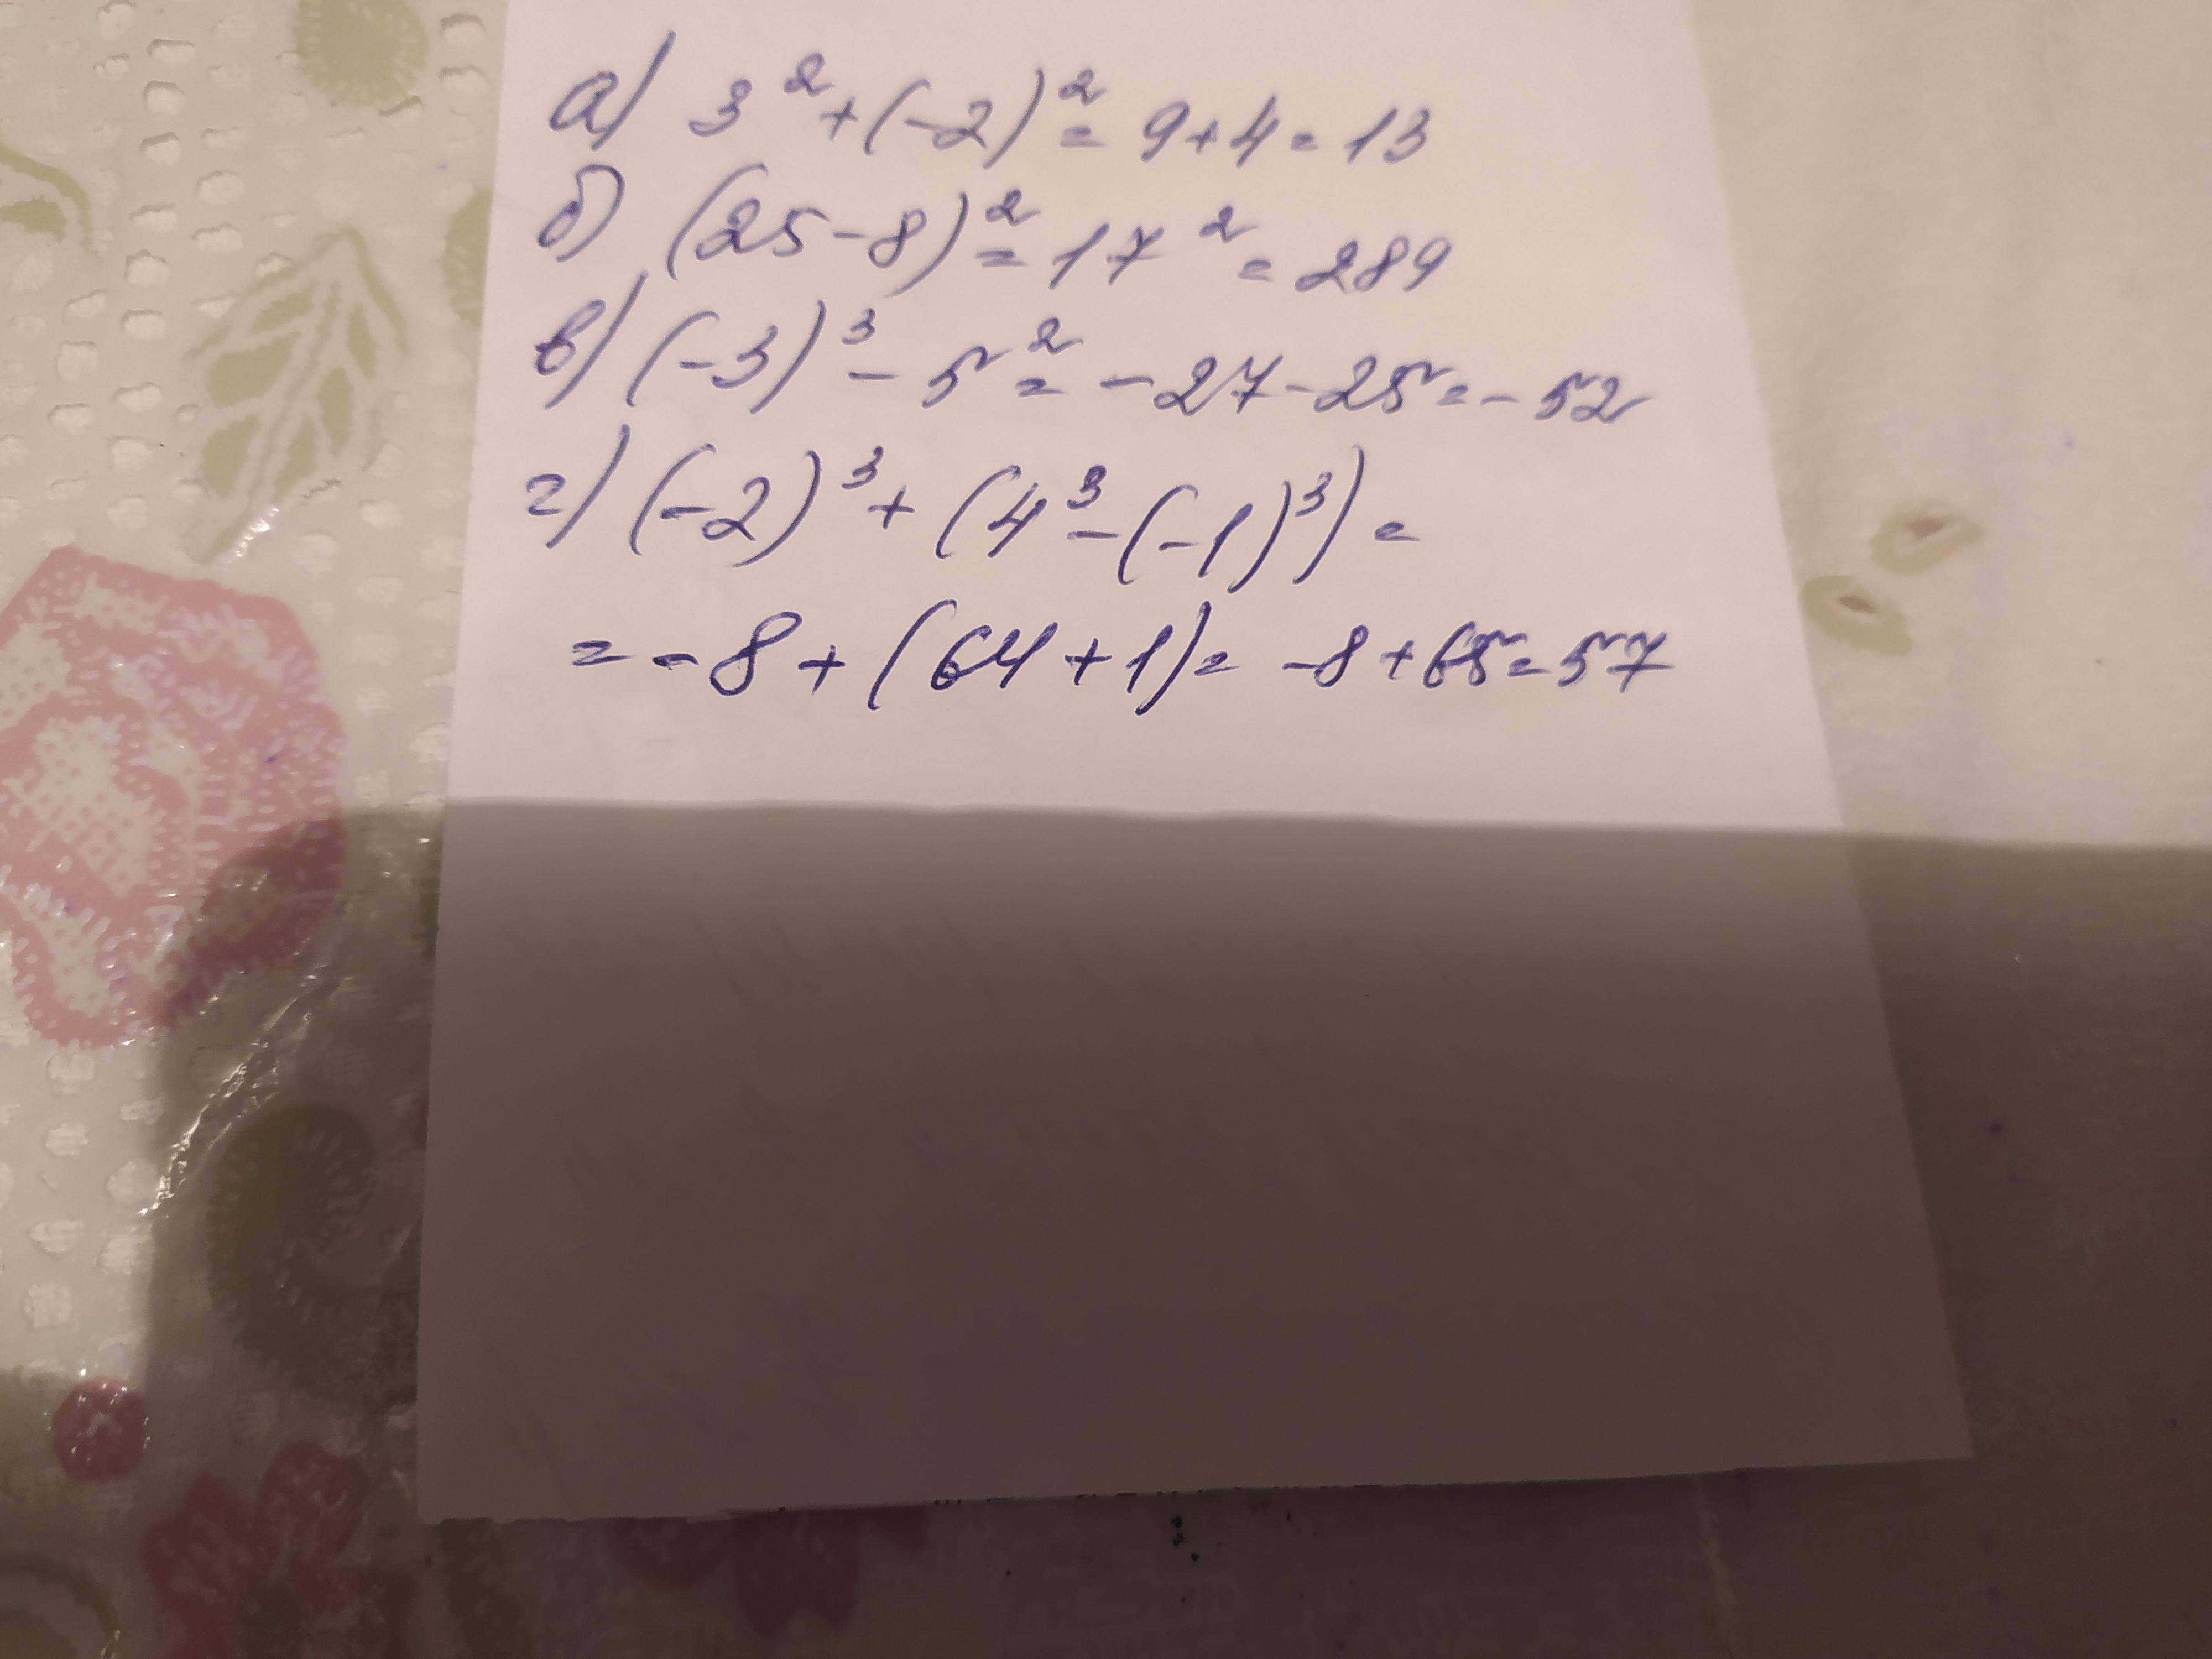 а) 3² + (-2)² = 9 + 4 = 13
б) (25 - 8)² = 17² = 289
в) (-3)³ - 5² = -27 - 25 = -52
г) (-2)³ + (4³ - (-1)³) =
= -8 + (64 + 1) = -8 + 65 = 57